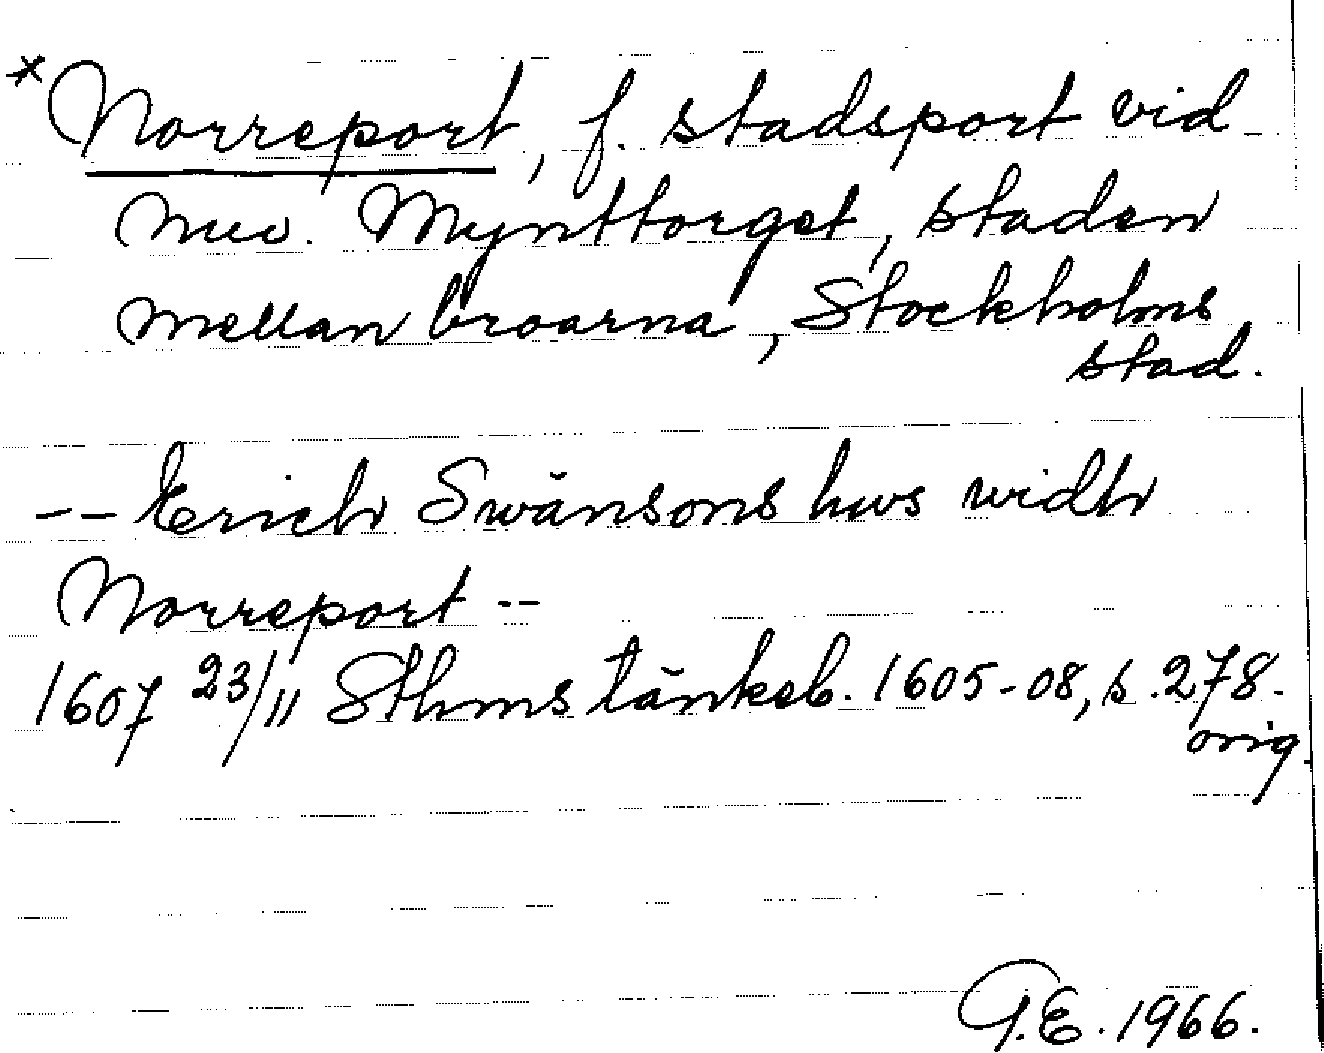 * Norreport, f. stadsport vid
nuv. Mynttorget, staden
mellan broarna, Stockholms
stad.
-- Erich Swänsons hws widh
Norreport --
1607 23/11 Sthms tänkeb. 1605-08, s. 278.
orig.
G.E. 1966.